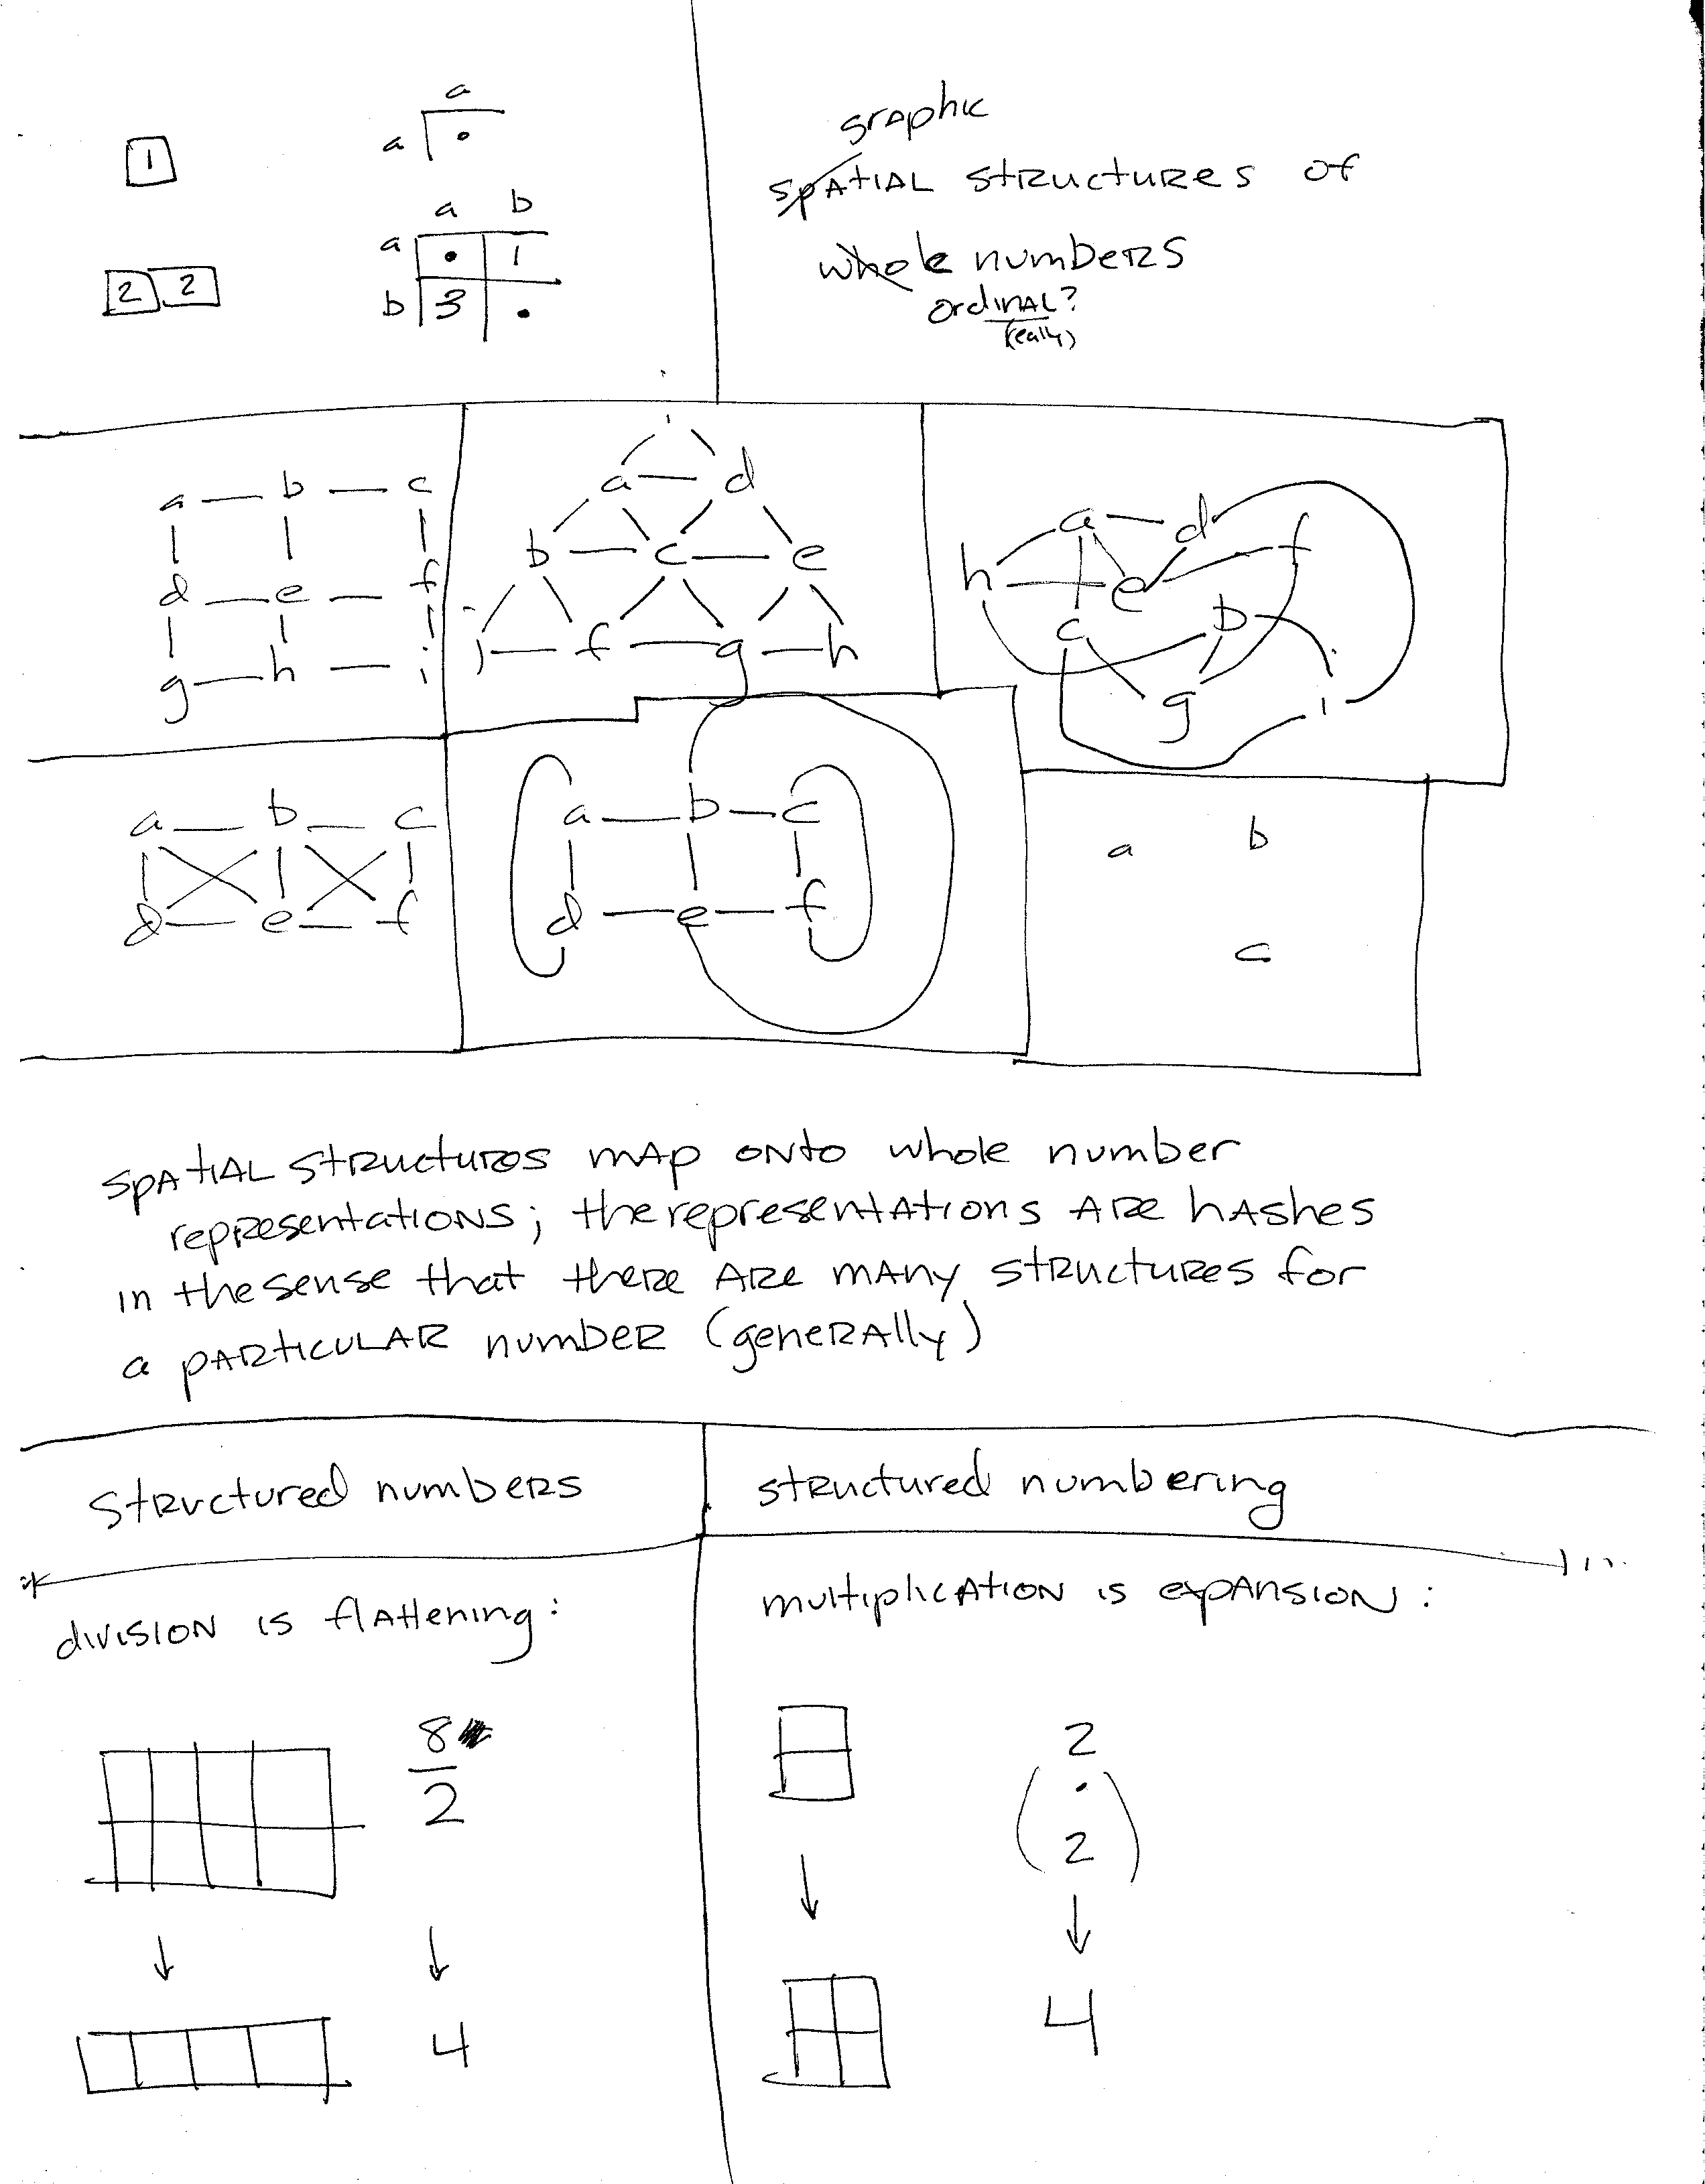 1
a
a •
2 2
a b
a • 1
b 3 •
graphic
spatial structures of
whole numbers
ordinal?
(really)
a — b — c
d — e — f
g — h — i
i
a — d
b — c — e
j — f — g — h
a — d
h — e f
c b
g i
a — b — c
d — e — f
a — b — c
d — e — f
a b
c
spatial structures map onto whole number
representations; the representations are hashes
in the sense that there are many structures for
a particular number (generally)
structured numbers
structured numbering
division is flattening:
8
2
↓ ↓
4
multiplication is expansion:
2
( • )
2
↓ ↓
4